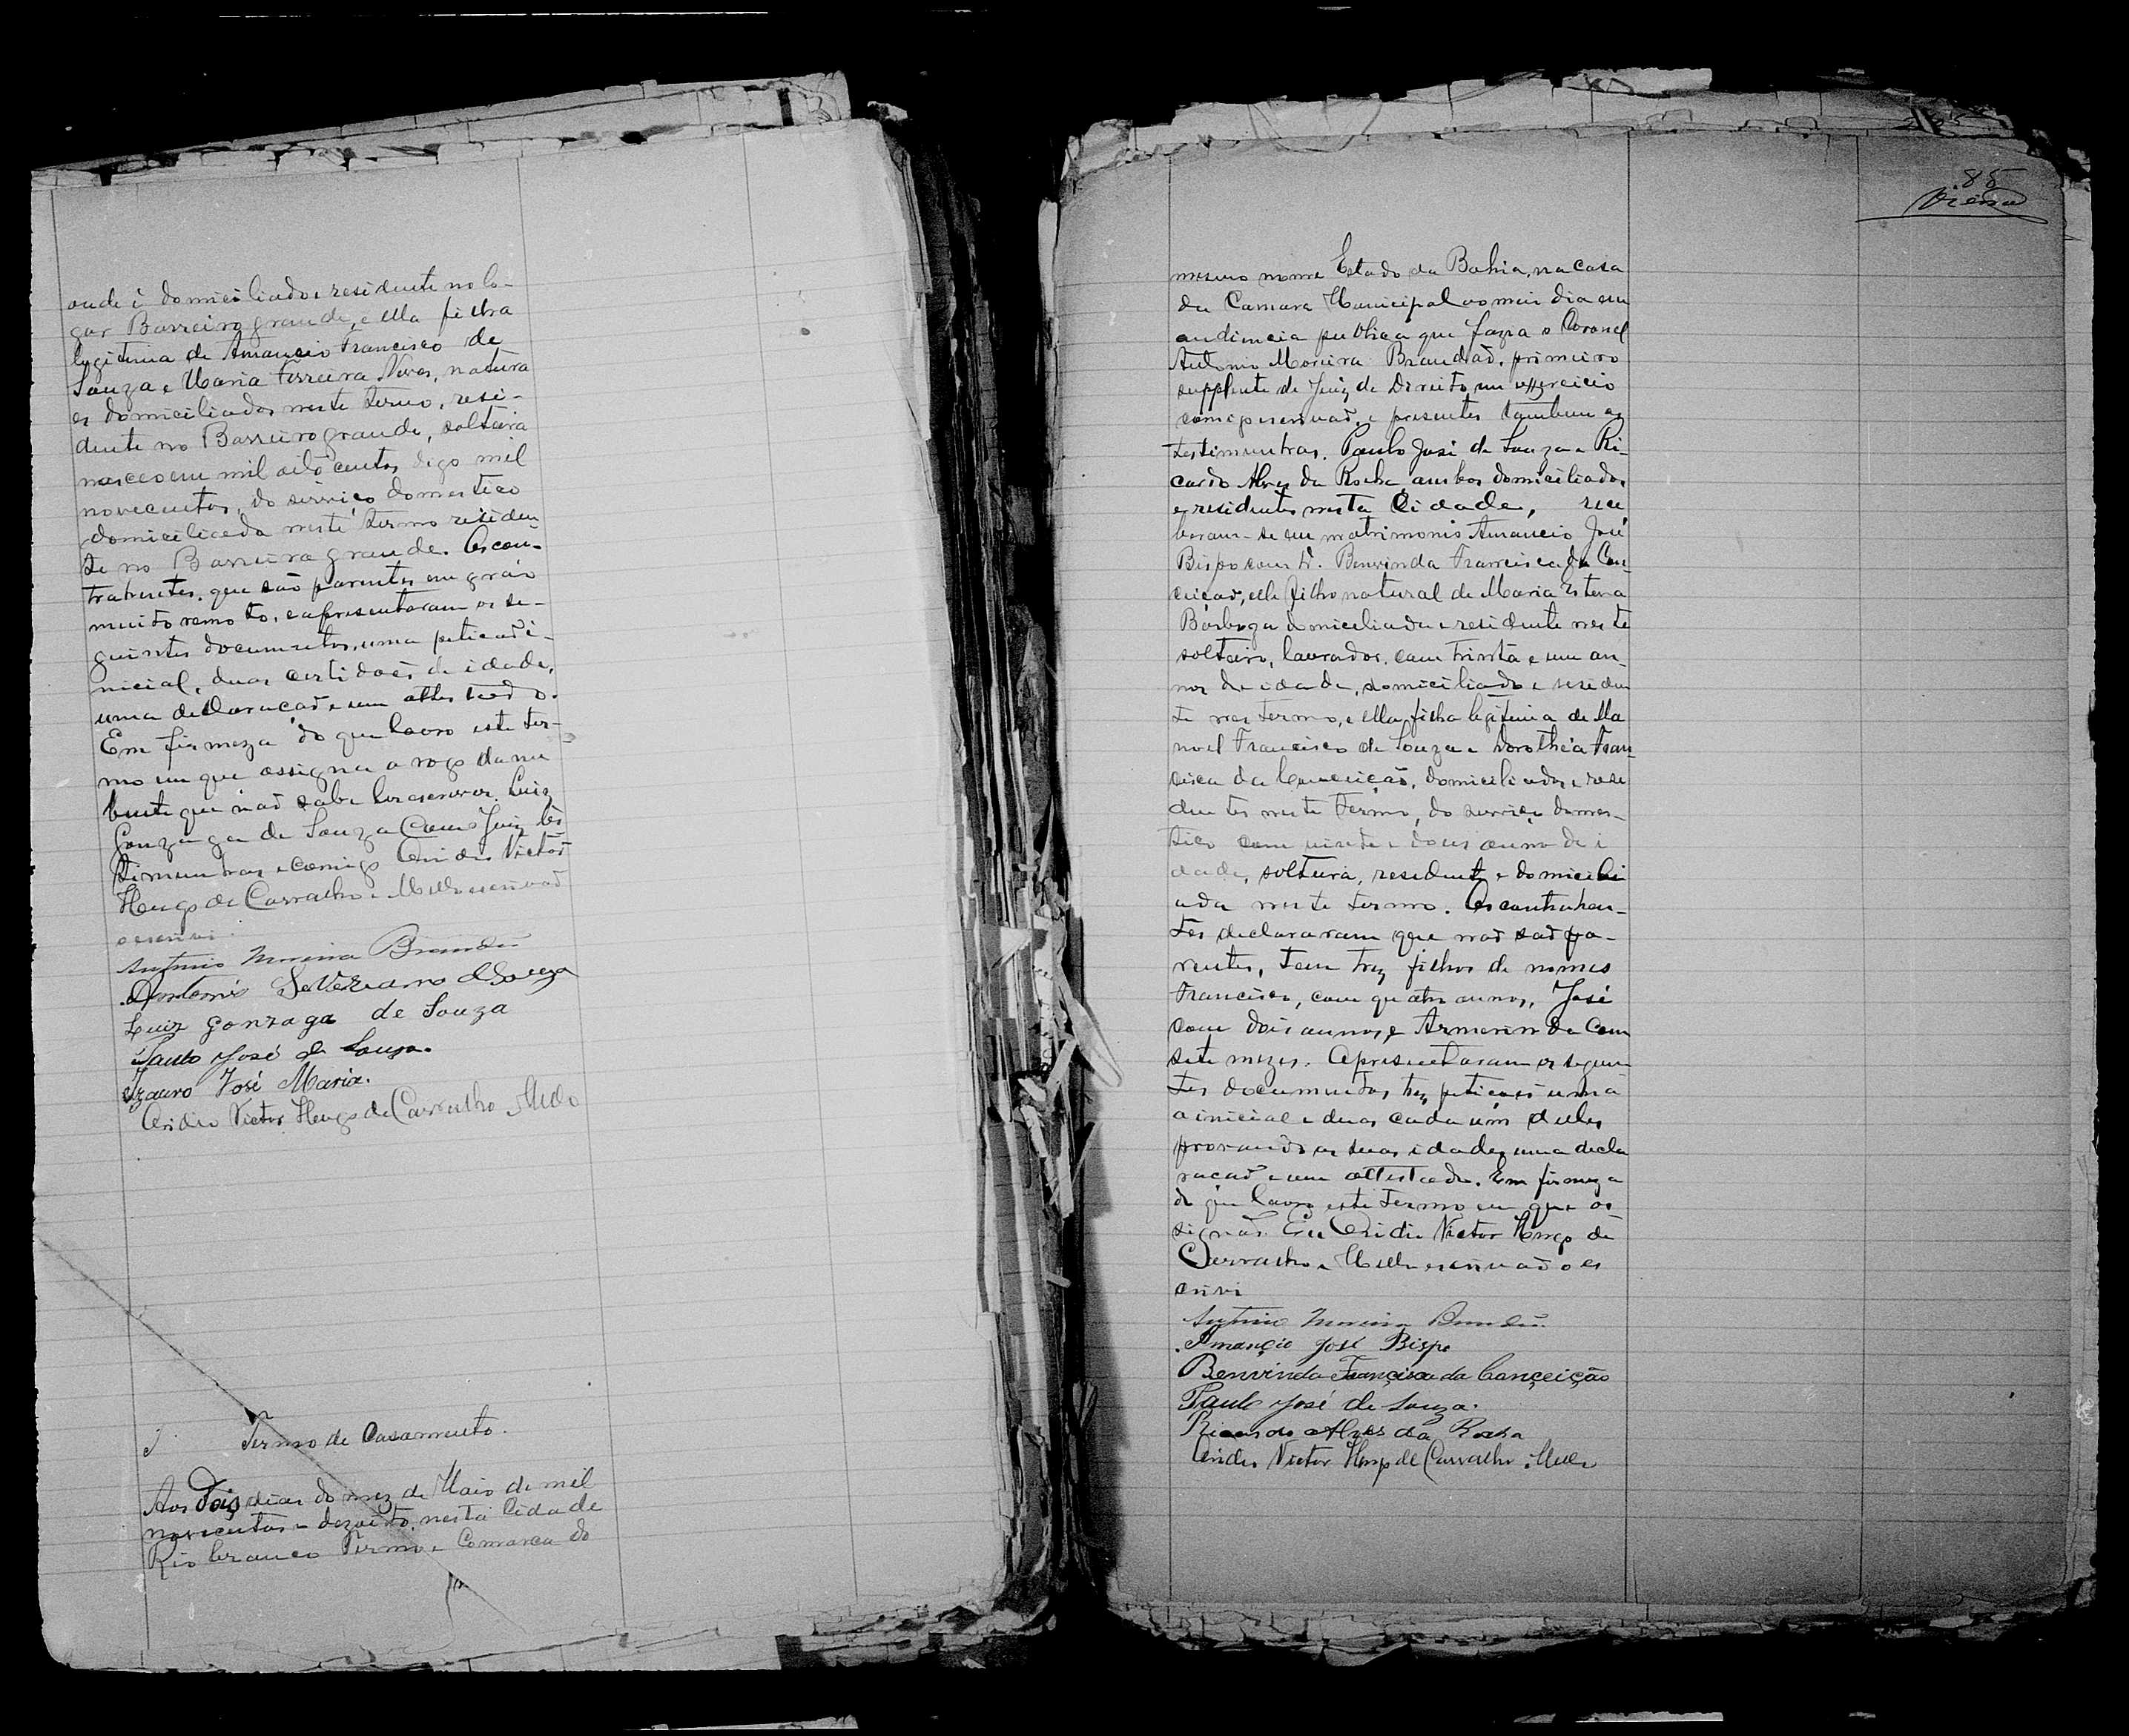 onde é domiciliado e residente no lo-
gar Barreiro grande, e ella filha
legitima de Amancio Francisco de
Souza e Maria Ferreira Neves, natura
es domiciliados neste termo, resi-
dente no Barreiro grande, solteira
nasceo em mil oito centos digo mil
novecentos, do serviço domestico
domiciliada neste termo residen
te no Barreiro grande. Os con-
trahentes, que são parentes em gráo
muito remoto, e apresentaram os se-
guintes documentos, uma petição i-
nicial, duas certidoes de idade,
uma declaração e um attestado.
Em firmeza do que lavro este ter-
mo em que assigna a rogo da nu
bente que não sabe ler escrever Luis
Gonzaga de Souza com o Juiz tes
timunhas e comigo Ovidio Victor
Hugo de Carvalho e Mello escrivão
o escrevi.
Antonio Moreira Brandão
Antonio Severiano de Souza
Luiz Gonzaga de Souza
Paulo José de Souza.
Izauro José Maria.
Ovidio Victor Hugo de Carvalho Mello
Termo de Casamento.
Aos Dois dias do mez de Maio de mil
novecentos e dezoito, nesta Cidade
Rio branco Termo e Comarca do
85
Vieira
mesmo nome Estado da Bahia, na casa
da Camara Municipal ao meio dia em
audiencia publica que fazia o Coronel
Antonio Moreira Brandão, primeiro
supplente de Juiz de Direito em exercicio
comigo escrivão, e presentes tambem as
testimunhas. Paulo José de Souza e Ri-
cardo Alves da Rocha, ambos domiciliados
e residentes nesta Cidade, rece
beram-se em matrimonio Amancio José
Bispo com D. Benvinda Francisca da Con-
ceição, elle filho natural de Maria Esteva
Barboza domiciliada e residente neste
solteiro, lavrador, com trinta e um an-
nos de idade, domiciliado e residen
te nes termo, e ella filha legitima de Ma
noel Francisco de Souza e Dorothéa Fran
cisca da Conceição, domiciliados e resi
dentes neste Termo, do serviço domes-
tico com vinte e dous annos de i
dade, solteira, residente e domicili
ada neste termo. Os contrahen-
tes declararam que não são pa-
rentes, tem trez filhos de nomes
Francisco, com quatro annos, José
com dois annos, e Armerinda com
sete mezes. Apresentaram os seguin
tes documentos, trez petições uma
a inicial e duas cada um delles
provando as suas idades, uma decla
ração e um attestado. Em firmeza
do que lavro este termo em que as
signão. Eu Ovidio Victor Hugo de
Carvalho e Mello escrivão o es
crivi
Antonio Moreira Brandão
Amancio José Bispo
Benvinda Francisca da Conçeição
Paulo José de Souza.
Ricardo Alves da Rocha
Ovidio Victor Hugo de Carvalho Mello